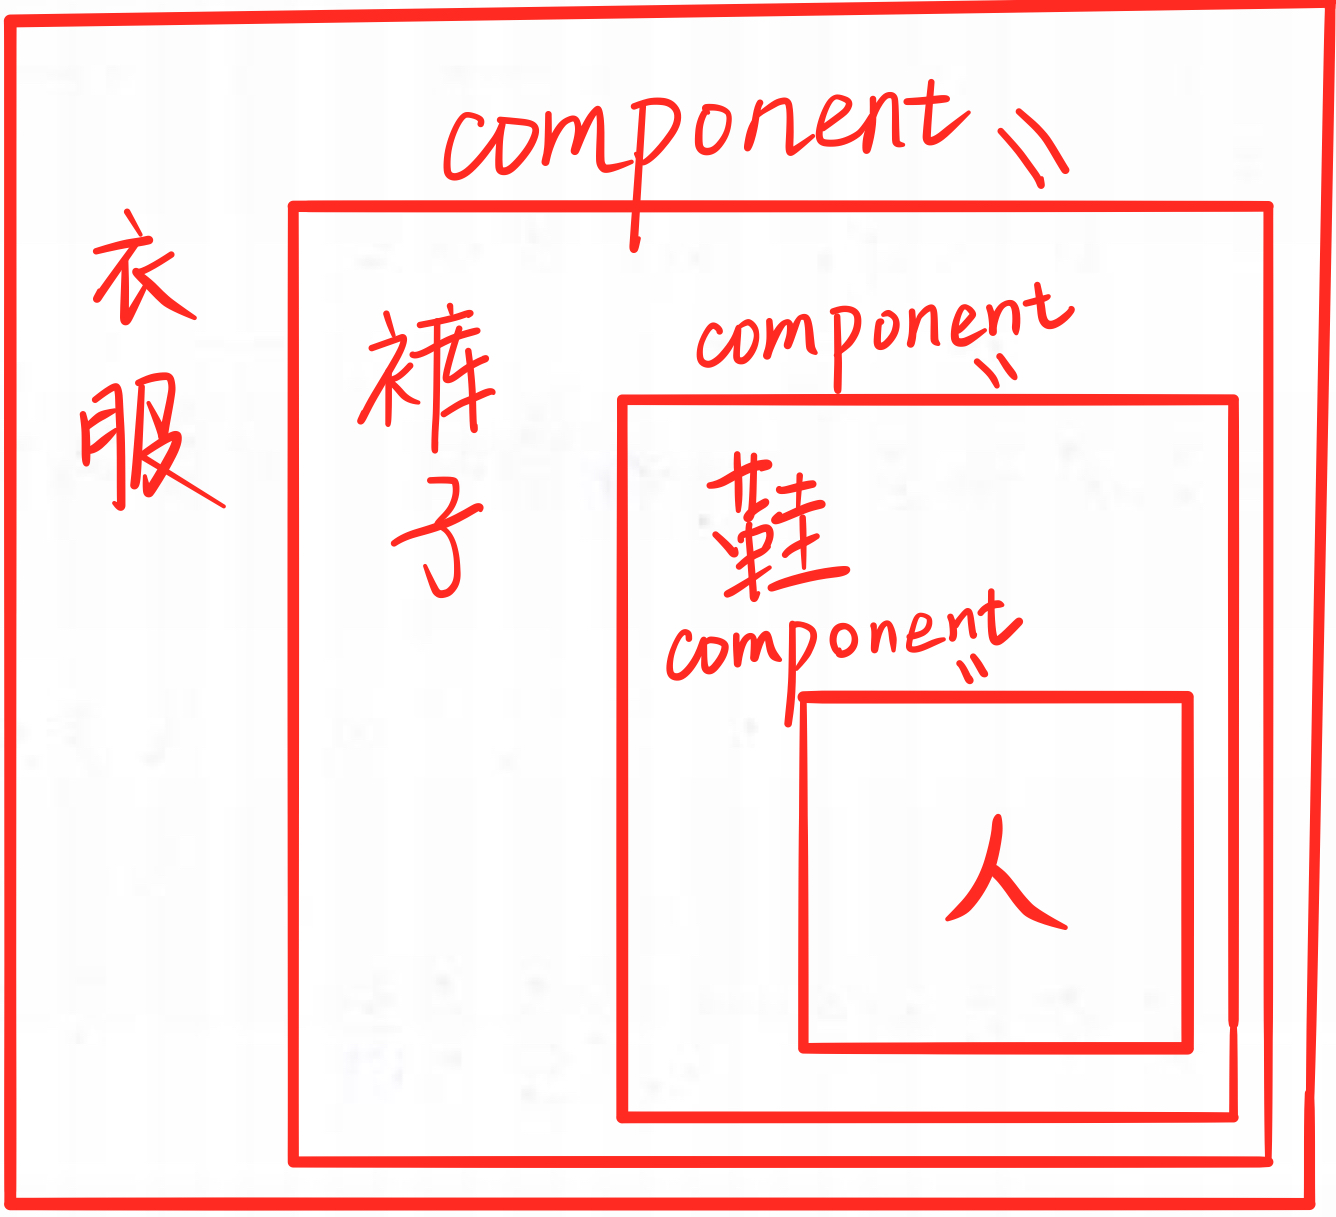 component
衣
服
component
裤
子
鞋
component
人